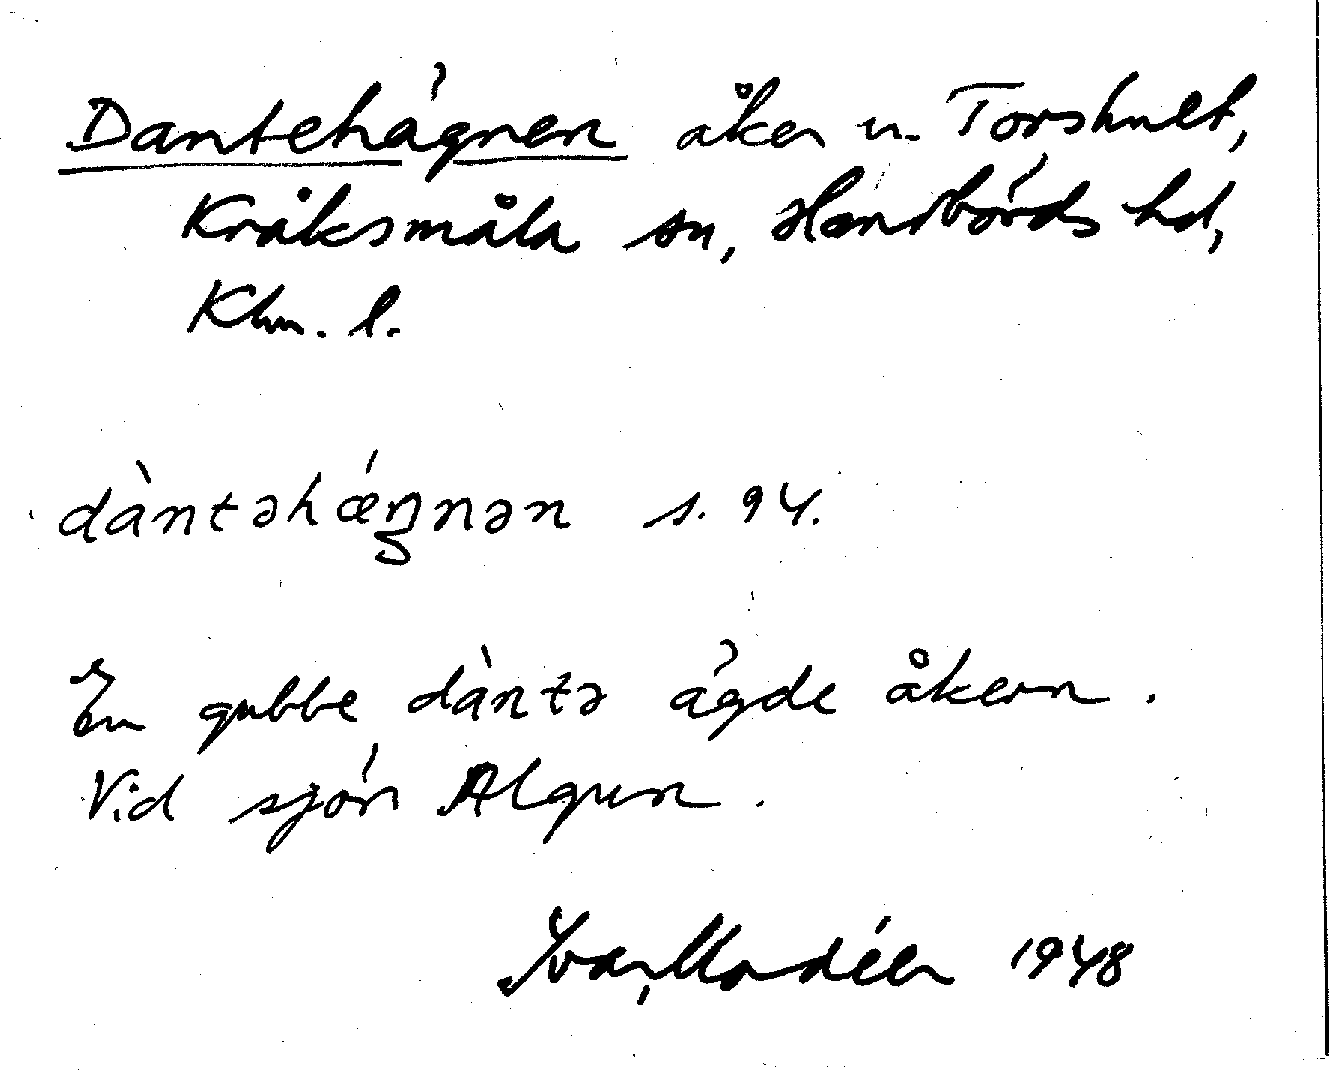 Dantehägnen åker u. Torshult,
Kråksmåla sn, Handbörds hd,
Klm. l.
dàntəhǽŋnən s. 94.
En gubbe dàntə ägde åkern.
Vid sjön Algun.
Ivar Modéer 1948